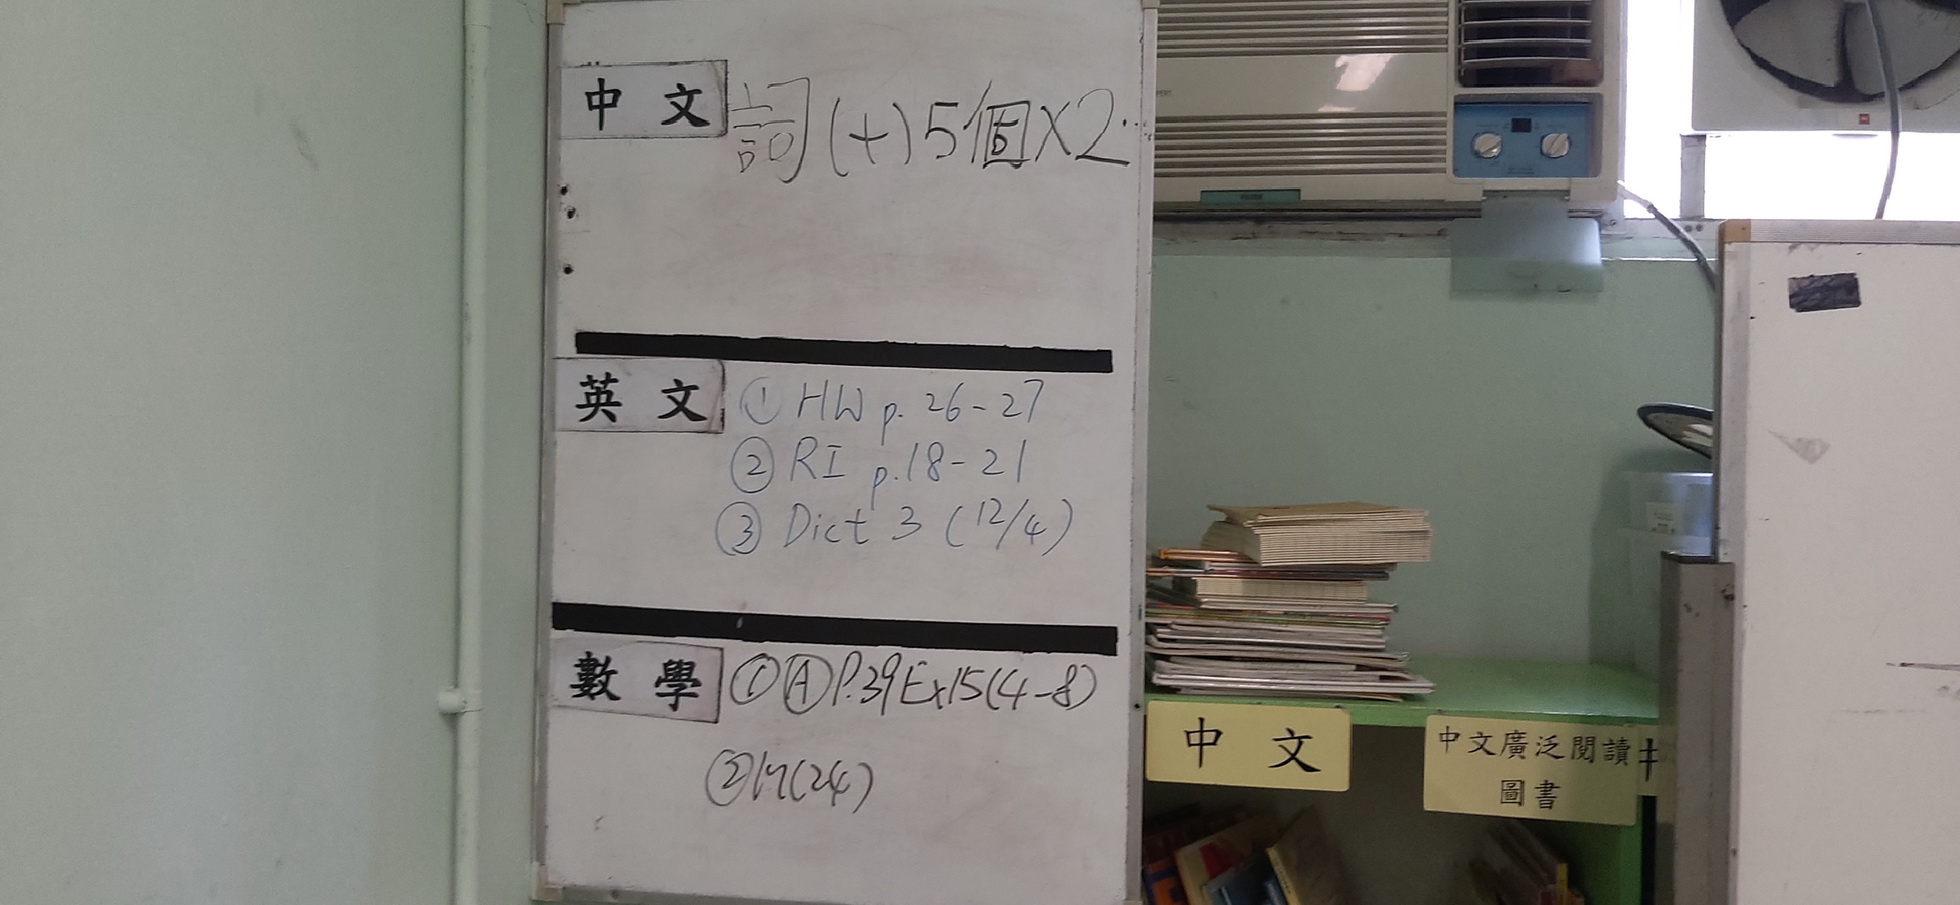 中文
詞(十)5個X2
英文
① HW p. 26-27
② RI p.18-21
③ Dict 3 (12/4)
數學
①Ⓐ P.39 Ex15(4-8)
中文
中文廣泛閱讀
圖書